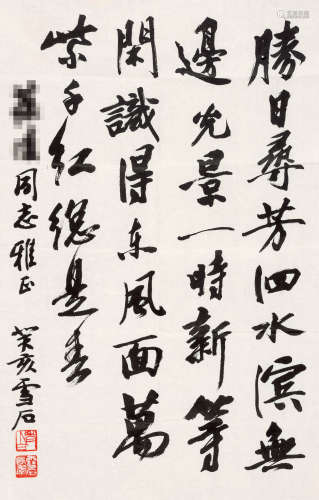 勝日尋芳泗水濱無
邊光景一時新等
閑識得東風面萬
紫千紅總是春
同志雅正
癸亥雪石